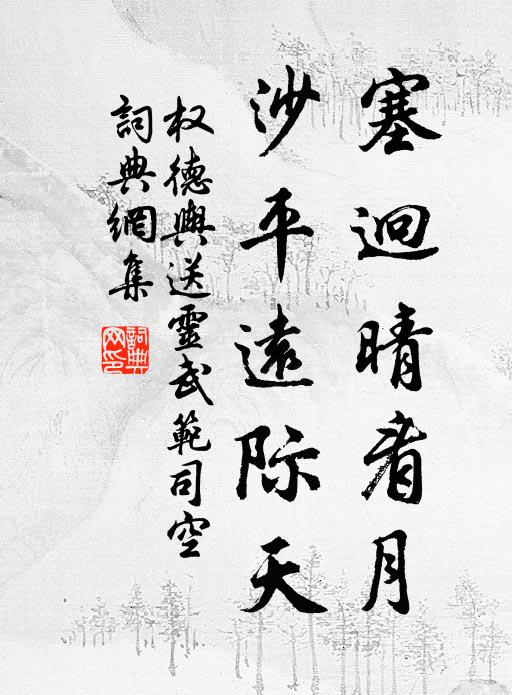 塞迥晴看月
沙平遠际天
权德輿送靈武範司空
詞典網集
詞典網印